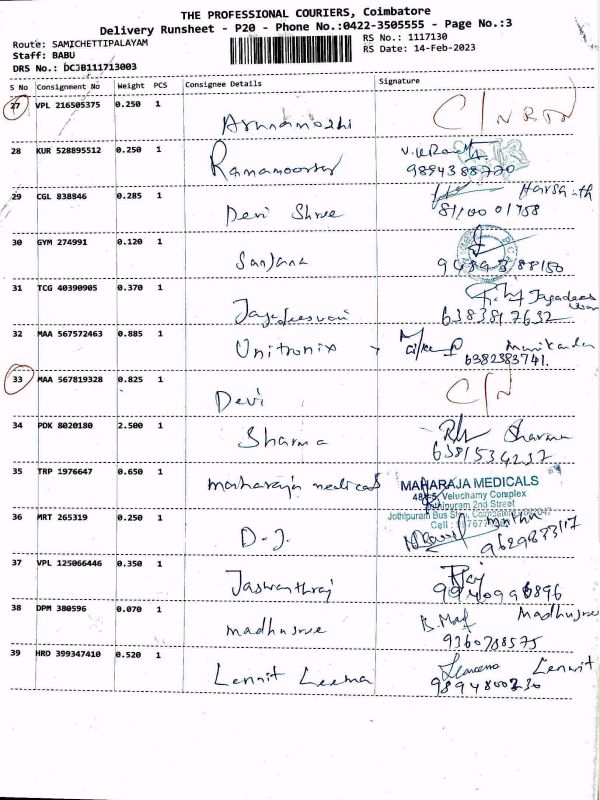 THE PROFESSIONAL COURIERS, Coimbatore
Delivery Runsheet - P20 - Phone No.:0422-3505555 - Page No.:3
Route: SAMICHETTIPALAYAM RS No.: 1117130
Staff: BABU RS Date: 14-Feb-2023
DRS No.: DCJB111713003
S No Consignment No Weight PCS Consignee Details Signature
27 VPL 216505375 0.250 1 C/N RTN
28 KUR 528895512 0.250 1
Ramamoorthy 9894388770
29 CGL 838846 0.285 1 Harsa-th
Devi Shree 8110001758
30 GYM 274991 0.120 1
Sanjana
31 TCG 40390905 0.370 1
6383817632
32 MAA 567572463 0.885 1
Unitronix 6382383741.
33 MAA 567819328 0.825 1 C/N
Devi
34 PDK 8020180 2.500 1
Sharma Sharma
6381534237
35 TRP 1976647 0.650 1
maharaja medical MAHARAJA MEDICALS
Veluchamy Complex
Jothipuram 2nd Street
Jothipuram Bus
Cell :
36 MRT 265319 0.250 1
D-J. 9629873117
37 VPL 125066446 0.350 1
Jaswanthraj
38 DPM 380596 0.070 1
madhusree Madhusree
9360708575
39 HRO 399347410 0.520 1
Lennit Leema Lennit